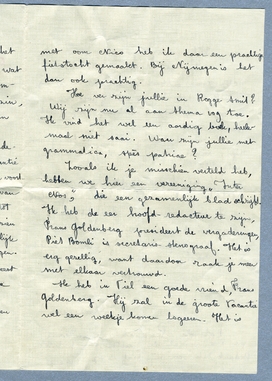 met oom Nico heb ik daar een prachtige
fietstocht gemaakt. Bij Nijmegen is het
dan ook prachtig.
Hoe ver zijn jullie in Rogge Smit?
Wij zijn nu al aan thema 109 toe.
Ik vind het wel een aardig boek, heele-
maal niet saai. Waar zijn jullie met
grammatica, spes patriae?
Zooals ik je misschien verteld heb,
hebben we hier een vereeniging, Inter
Nos, die een gezamenlijk blad schrijft.
Ik heb de eer hoofd-redacteur te zijn,
Frans Goldenberg president de vergaderingen,
Piet is secretaris stenograaf. Het is
erg gezellig, want daardoor raak je meer
met elkaar vertrouwd.
Ik heb in Tiel een goede vriend Frans
Goldenberg. Hij zal in de groote vacantie
wel een weekje komen logeren. Het is